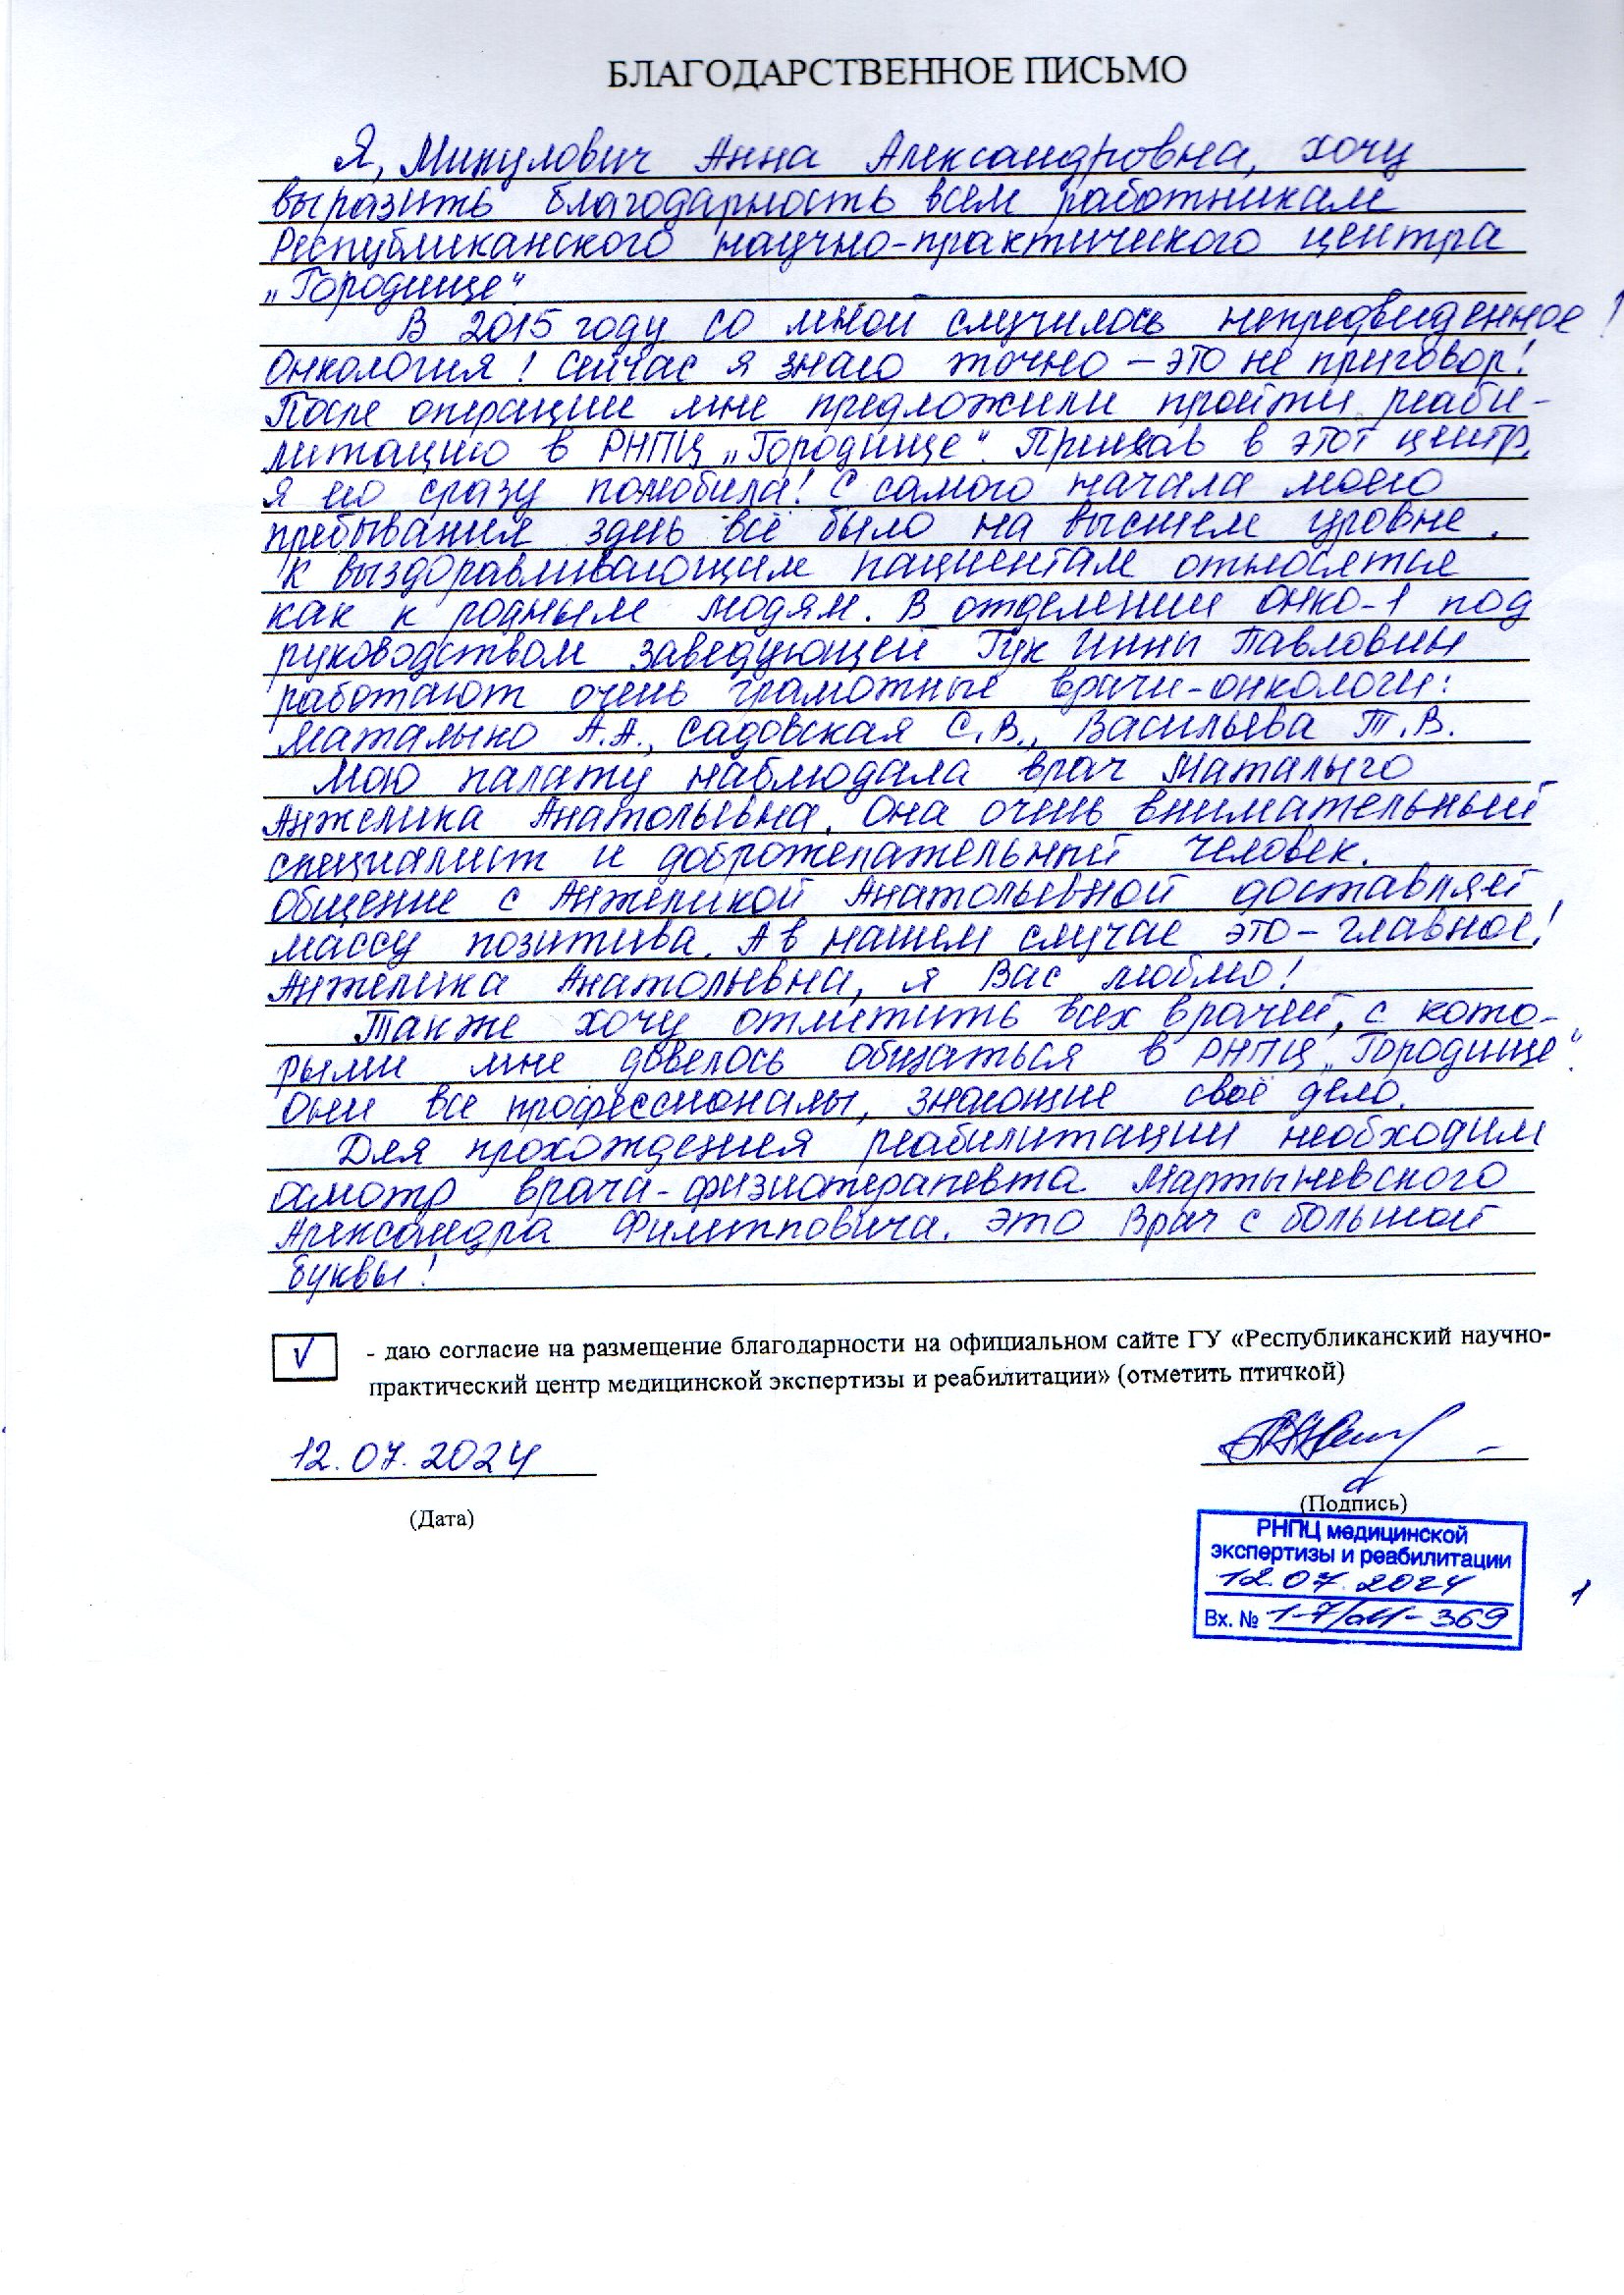 БЛАГОДАРСТВЕННОЕ ПИСЬМО
Я, Микулович Анна Александровна, хочу
выразить благодарность всем работникам
Республиканского научно-практического центра
„Городище“
В 2015 году со мной случилось непредвиденное!
Онкология! Сейчас я знаю точно – это не приговор!
После операции мне предложили пройти реаби-
литацию в РНПЦ „Городище“. Приехав в этот центр,
я его сразу полюбила! С самого начала моего
пребывания здесь всё было на высшем уровне.
К выздоравливающим пациентам относятся
как к родным людям. В отделении онко-1 под
руководством заведующей Гук Инны Павловны
работают очень грамотные врачи-онкологи:
Маталыко А.А., Садовская С.В., Васильева Т.В.
Мою палату наблюдала врач Маталыго
Анжелика Анатольевна. Она очень внимательный
специалист и доброжелательный человек.
Общение с Анжеликой Анатольевной доставляет
массу позитива. А в нашем случае это – главное!
Анжелика Анатольевна, я Вас люблю!
Также хочу отметить всех врачей, с кото-
рыми мне довелось общаться в РНПЦ „Городище“.
Они все профессионалы, знающие своё дело.
Для прохождения реабилитации необходим
осмотр врача-физиотерапевта Мартыневского
Александра Филипповича. Это Врач с большой
буквы!
V - даю согласие на размещение благодарности на официальном сайте ГУ «Республиканский научно-
практический центр медицинской экспертизы и реабилитации» (отметить птичкой)
12.07.2024
(Дата) (Подпись)
РНПЦ медицинской
экспертизы и реабилитации
12.07.2024
Вх. № 1-7/ -369
1